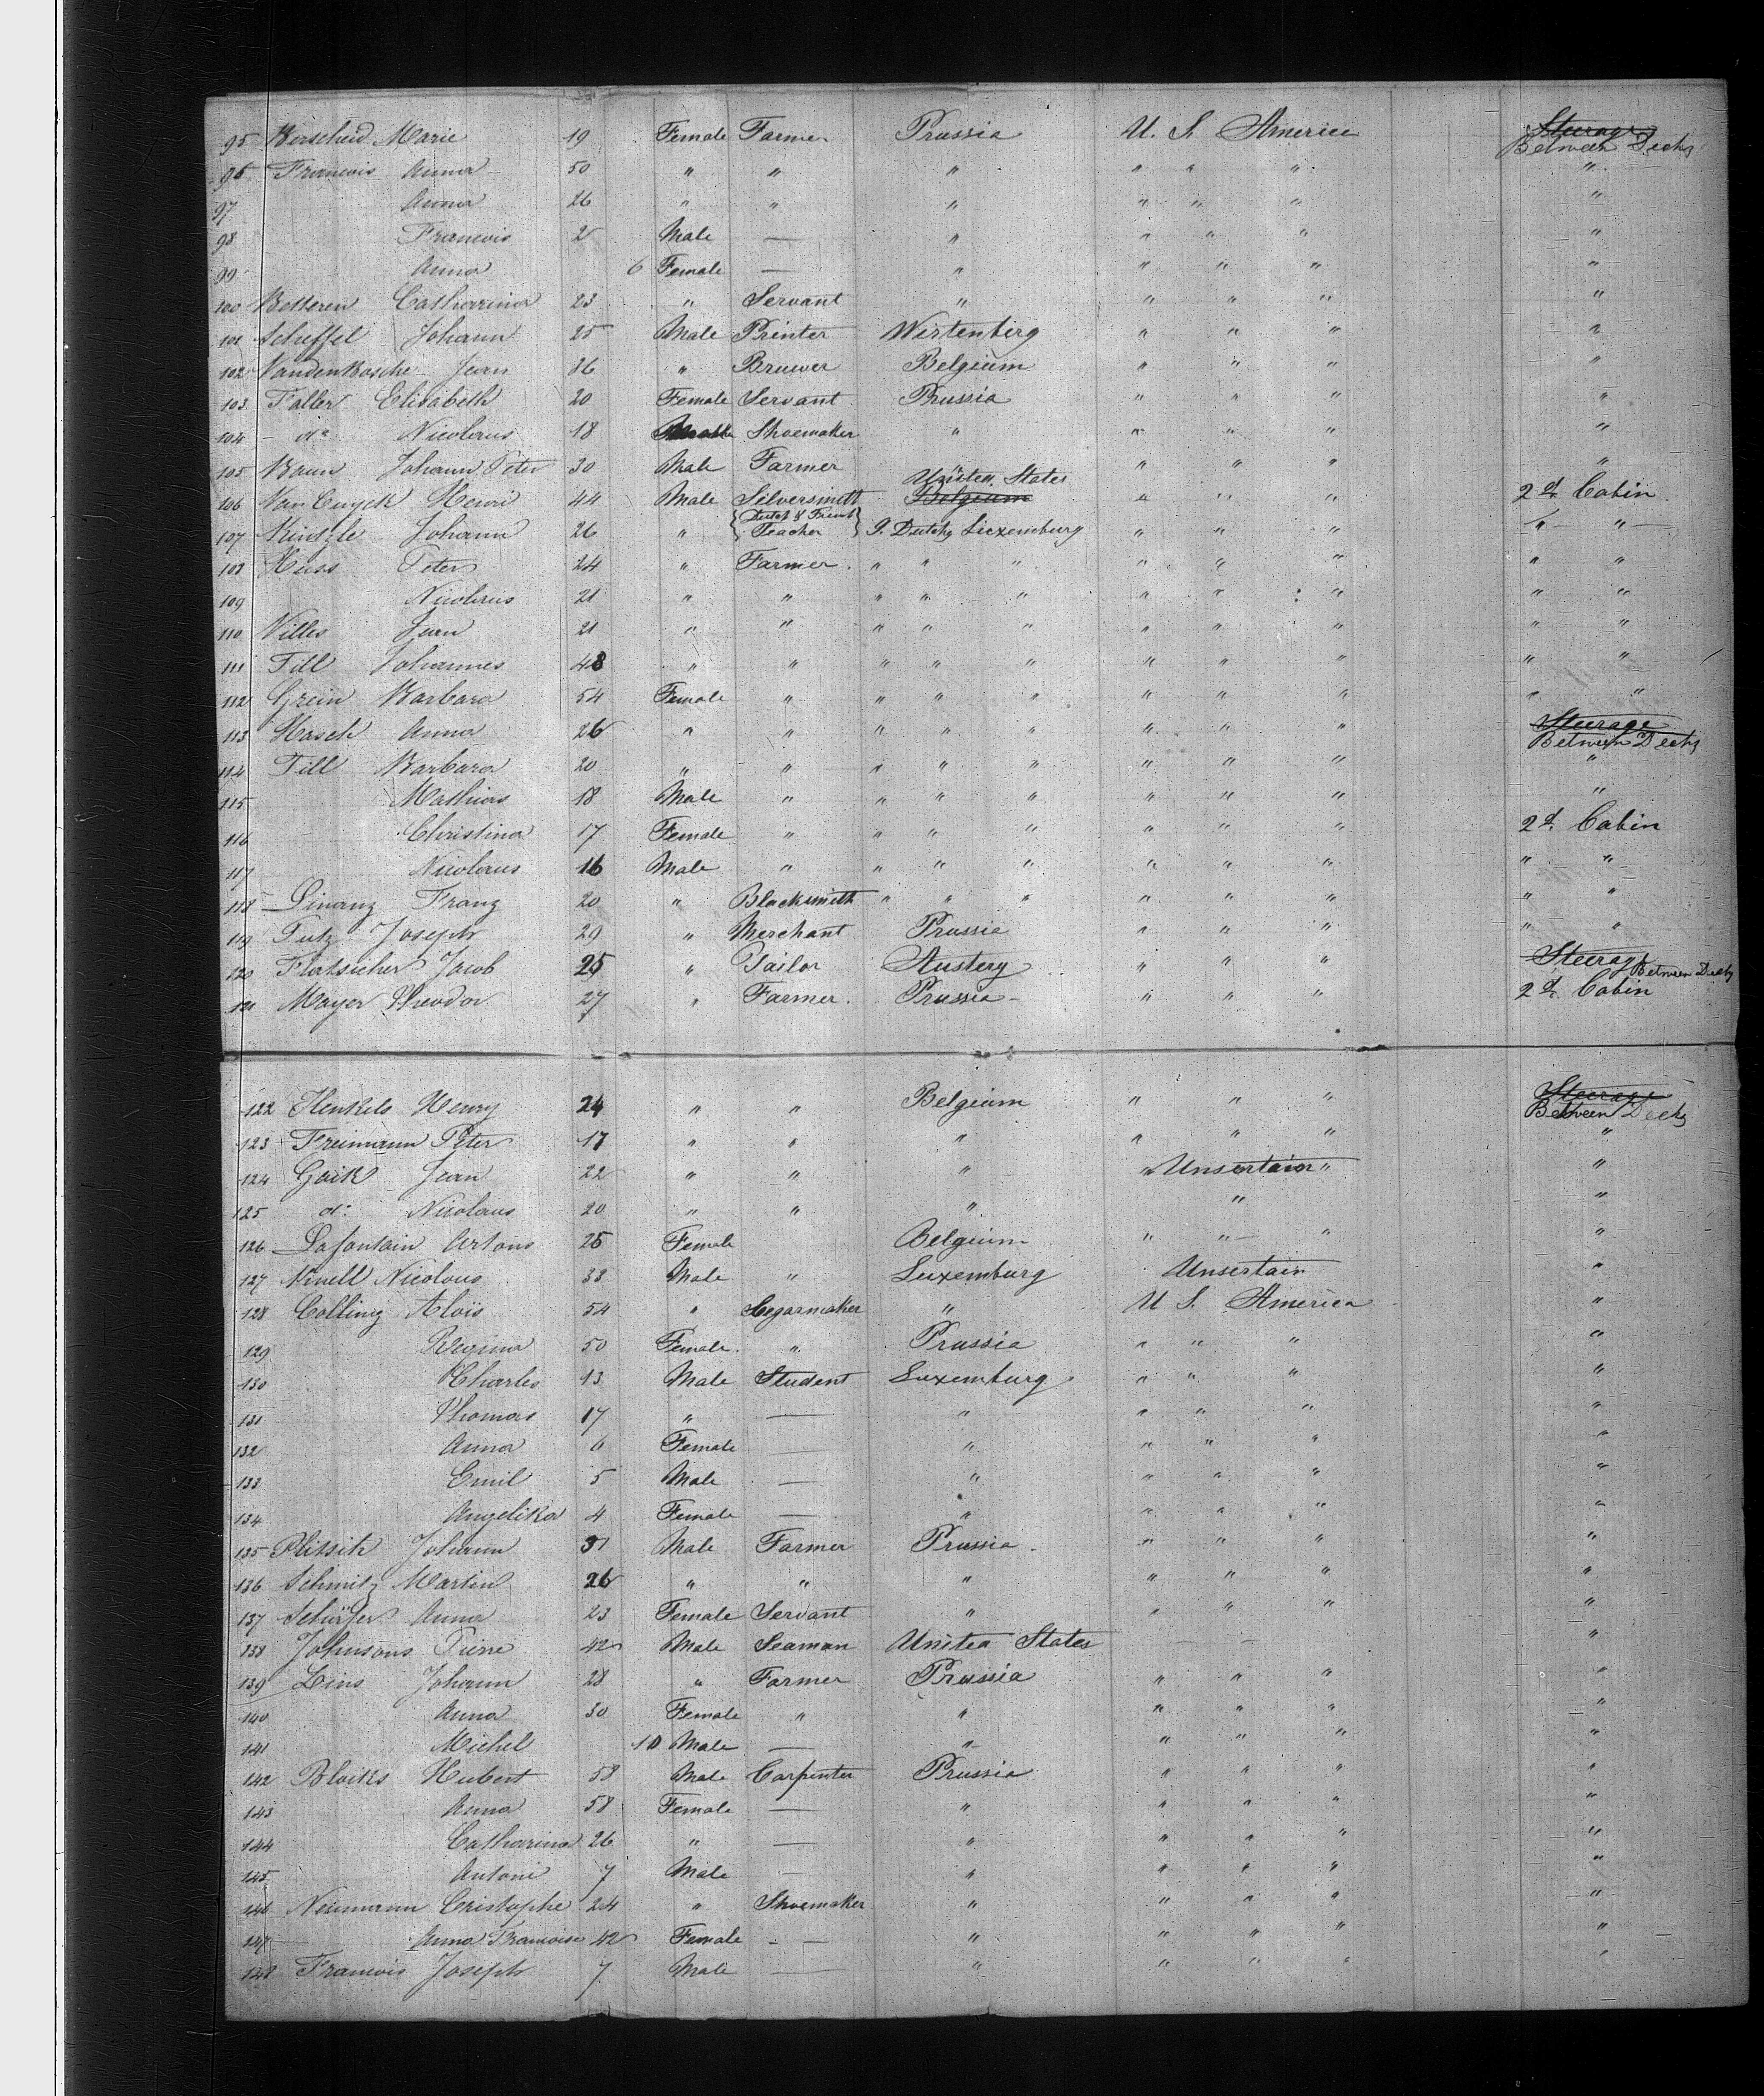 95 Berscheid Marie 19 Female Farmer Prussia U. S. America Steerage Between Decks
96 Francois Anna 50 " " " " " " "
97 Anna 26 " " " " " " "
98 Francois 2 Male — " " " " "
99 Anna 6 Female — " " " " "
100 Betteren Catharina 23 " Servant " " " " "
101 Scheffel Johann 25 Male Printer Wirtenberg " " " "
102 VandenBosche Jean 36 " Bruwer Belgium " " " "
103 Faller Elisabeth 20 Female Servant Prussia " " " "
104 do Nicolaus 18 Shoemaker " " " " "
105 Braun Johann Peter 30 Male Farmer " " " " "
106 Van Cuyck Henri 44 Male Silversmith Belgium United States " " " 2d. Cabin
107 Kinzle Johann 26 " {Dutch & French Teacher} G. Dutchy Luxemburg " " " " "
108 Huss Peter 24 " Farmer " " " " " " " "
109 Nicolaus 21 " " " " " " " " " "
110 Villes Jean 21 " " " " " " " " " "
111 Till Johannes 48 " " " " " " " " " "
112 Grein Barbara 54 Female " " " " " " " " "
113 Hasch Anna 26 " " " " " " " " Steerage Between Decks
114 Till Barbara 20 " " " " " " " " "
115 Mathias 18 Male " " " " " " " "
116 Christina 17 Female " " " " " " " 2d. Cabin
117 Nicolaus 16 Male " " " " " " " " "
118 Linanz Franz 20 " Blacksmith " " " " " " " "
119 Tutz Joseph 29 " Merchant Prussia " " " " "
120 Flatsicher Jacob 25 " Tailor Austery " " " Steerage Between Decks
121 Mayer Theodor 27 " Farmer Prussia " " " 2d. Cabin
122 Henkels Henry 24 " " Belgium " " " Steerage Between Decks
123 Freimann Peter 17 " " " " " " "
124 Goik Jean 22 " " " " Unsertain " "
125 do: Nicolaus 20 " " " " "
126 Lafontain Artons 25 Female Belgium " " " "
127 Kinell Nicolaus 33 Male " Luxemburg Unsertain "
128 Colling Aloïs 54 " Segarmaker " U S. America "
129 Regina 50 Female " Prussia " " " "
130 Charles 13 Male Student Luxemburg " " " "
131 Thomas 17 " — " " " " "
132 Anna 6 Female — " " " " "
133 Emil 5 Male — " " " " "
134 Angelika 4 Female — " " " " "
135 Plitsch Johann 31 Male Farmer Prussia " " " "
136 Schmitz Martin 26 " " " " " " "
137 Schäfer Anna 23 Female Servant " " " " "
138 Johnsons Pierre 42 Male Seaman United States — — "
139 Lins Johann 28 " Farmer Prussia " " " "
140 Anna 30 Female " " " " " "
141 Michel 10 Male — " " " " "
142 Bloiks Hubert 58 Male Carpenter Prussia " " " "
143 Anna 58 Female — " " " " "
144 Catharina 26 " — " " " " "
145 Antoni 7 Male — " " " " "
146 Neumann Cristophe 24 " Shoemaker " " " " "
147 Anna Francoise 42 Female — — " " " " "
148 Francois Joseph 7 Male — " " " " "